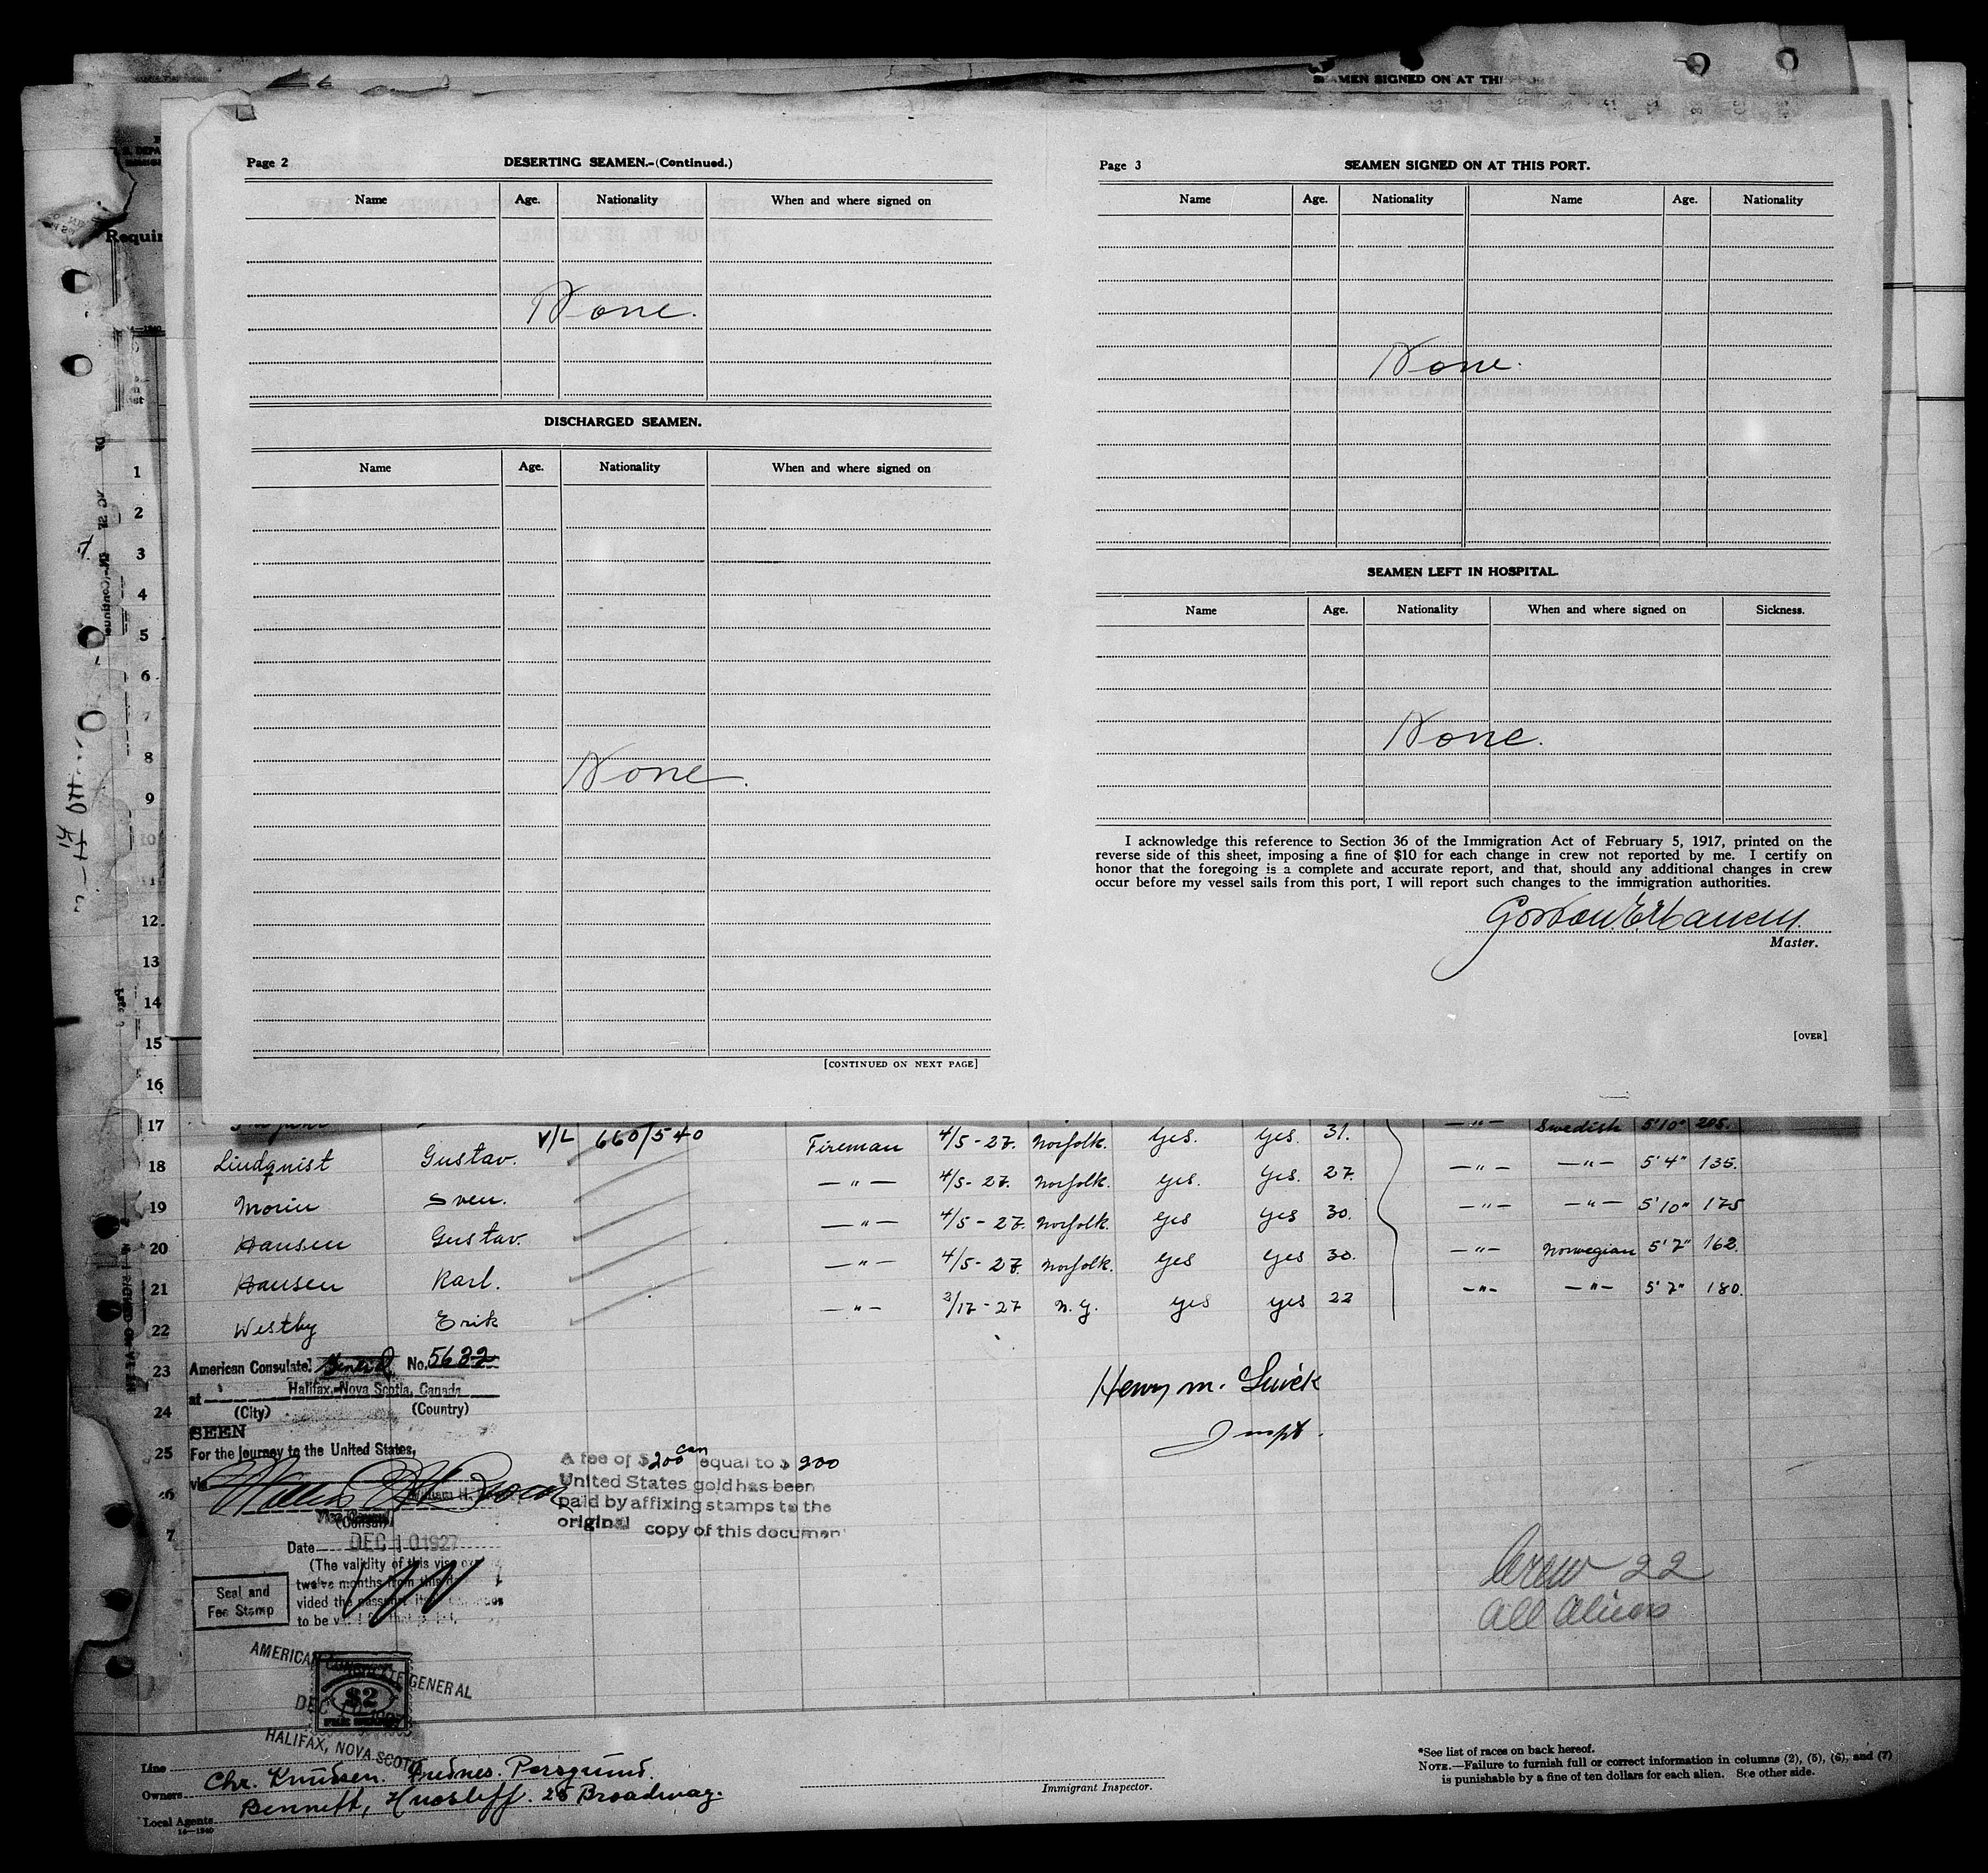 SEAMEN SIGNED ON AT THI
Page 2 DESERTING SEAMEN.-(Continued.)
Name Age. Nationality When and where signed on
None.
DISCHARGED SEAMEN.
Name Age. Nationality When and where signed on
None.
[CONTINUED ON NEXT PAGE]
Page 3 SEAMEN SIGNED ON AT THIS PORT.
Name Age. Nationality Name Age. Nationality
None.
SEAMEN LEFT IN HOSPITAL.
Name Age. Nationality When and where signed on Sickness.
None.
I acknowledge this reference to Section 36 of the Immigration Act of February 5, 1917, printed on the
reverse side of this sheet, imposing a fine of $10 for each change in crew not reported by me. I certify on
honor that the foregoing is a complete and accurate report, and that, should any additional changes in crew
occur before my vessel sails from this port, I will report such changes to the immigration authorities.
Master.
[OVER]
Requir
1
2
3
4
5
6
7
8
9
10
11
12
13
14
15
16
17 Swedish 5'10" 205.
V/L 660/540
18 Lindquist Gustav. Fireman 4/5-27. Norfolk. Yes. Yes. 31. —"— —"— 5'4" 135.
19 Morin Sven. —"— 4/5-27. Norfolk. Yes. Yes. 27. —"— —"— 5'10" 175
20 Hansen Gustav. —"— 4/5-27. Norfolk. Yes Yes 30. —"— Norwegian 5'7" 162.
21 Hansen Karl. —"— 4/5-27. Norfolk. Yes Yes 30. —"— —"— 5'7" 180.
22 Westby Erik —"— 3/17-27 N.Y. Yes Yes 22
23 American Consulate General No. 5632
at Halifax, Nova Scotia, Canada
24 (City) (Country)
SEEN
25 For the journey to the United States,
via
Vice Consul
(Consul)
Date DEC 10 1927
(The validity of this visa
twelve months from this
vided the passport
to be
Seal and
Fee Stamp
A fee of $200 can equal to $200
United States gold has been
paid by affixing stamps to the
original copy of this documen
Henry M.
Inspt.
Crew 22
All Aliens
AMERICAN CONSULATE GENERAL
$2
DEC 10 1927
HALIFAX, NOVA SCOTIA
Line
Owners Chr. Knudsen.
Local Agents Bennett, 25 Broadway.
16—1240
Immigrant Inspector.
*See list of races on back hereof.
NOTE.—Failure to furnish full or correct information in columns (2), (5), (6), and (7)
is punishable by a fine of ten dollars for each alien. See other side.